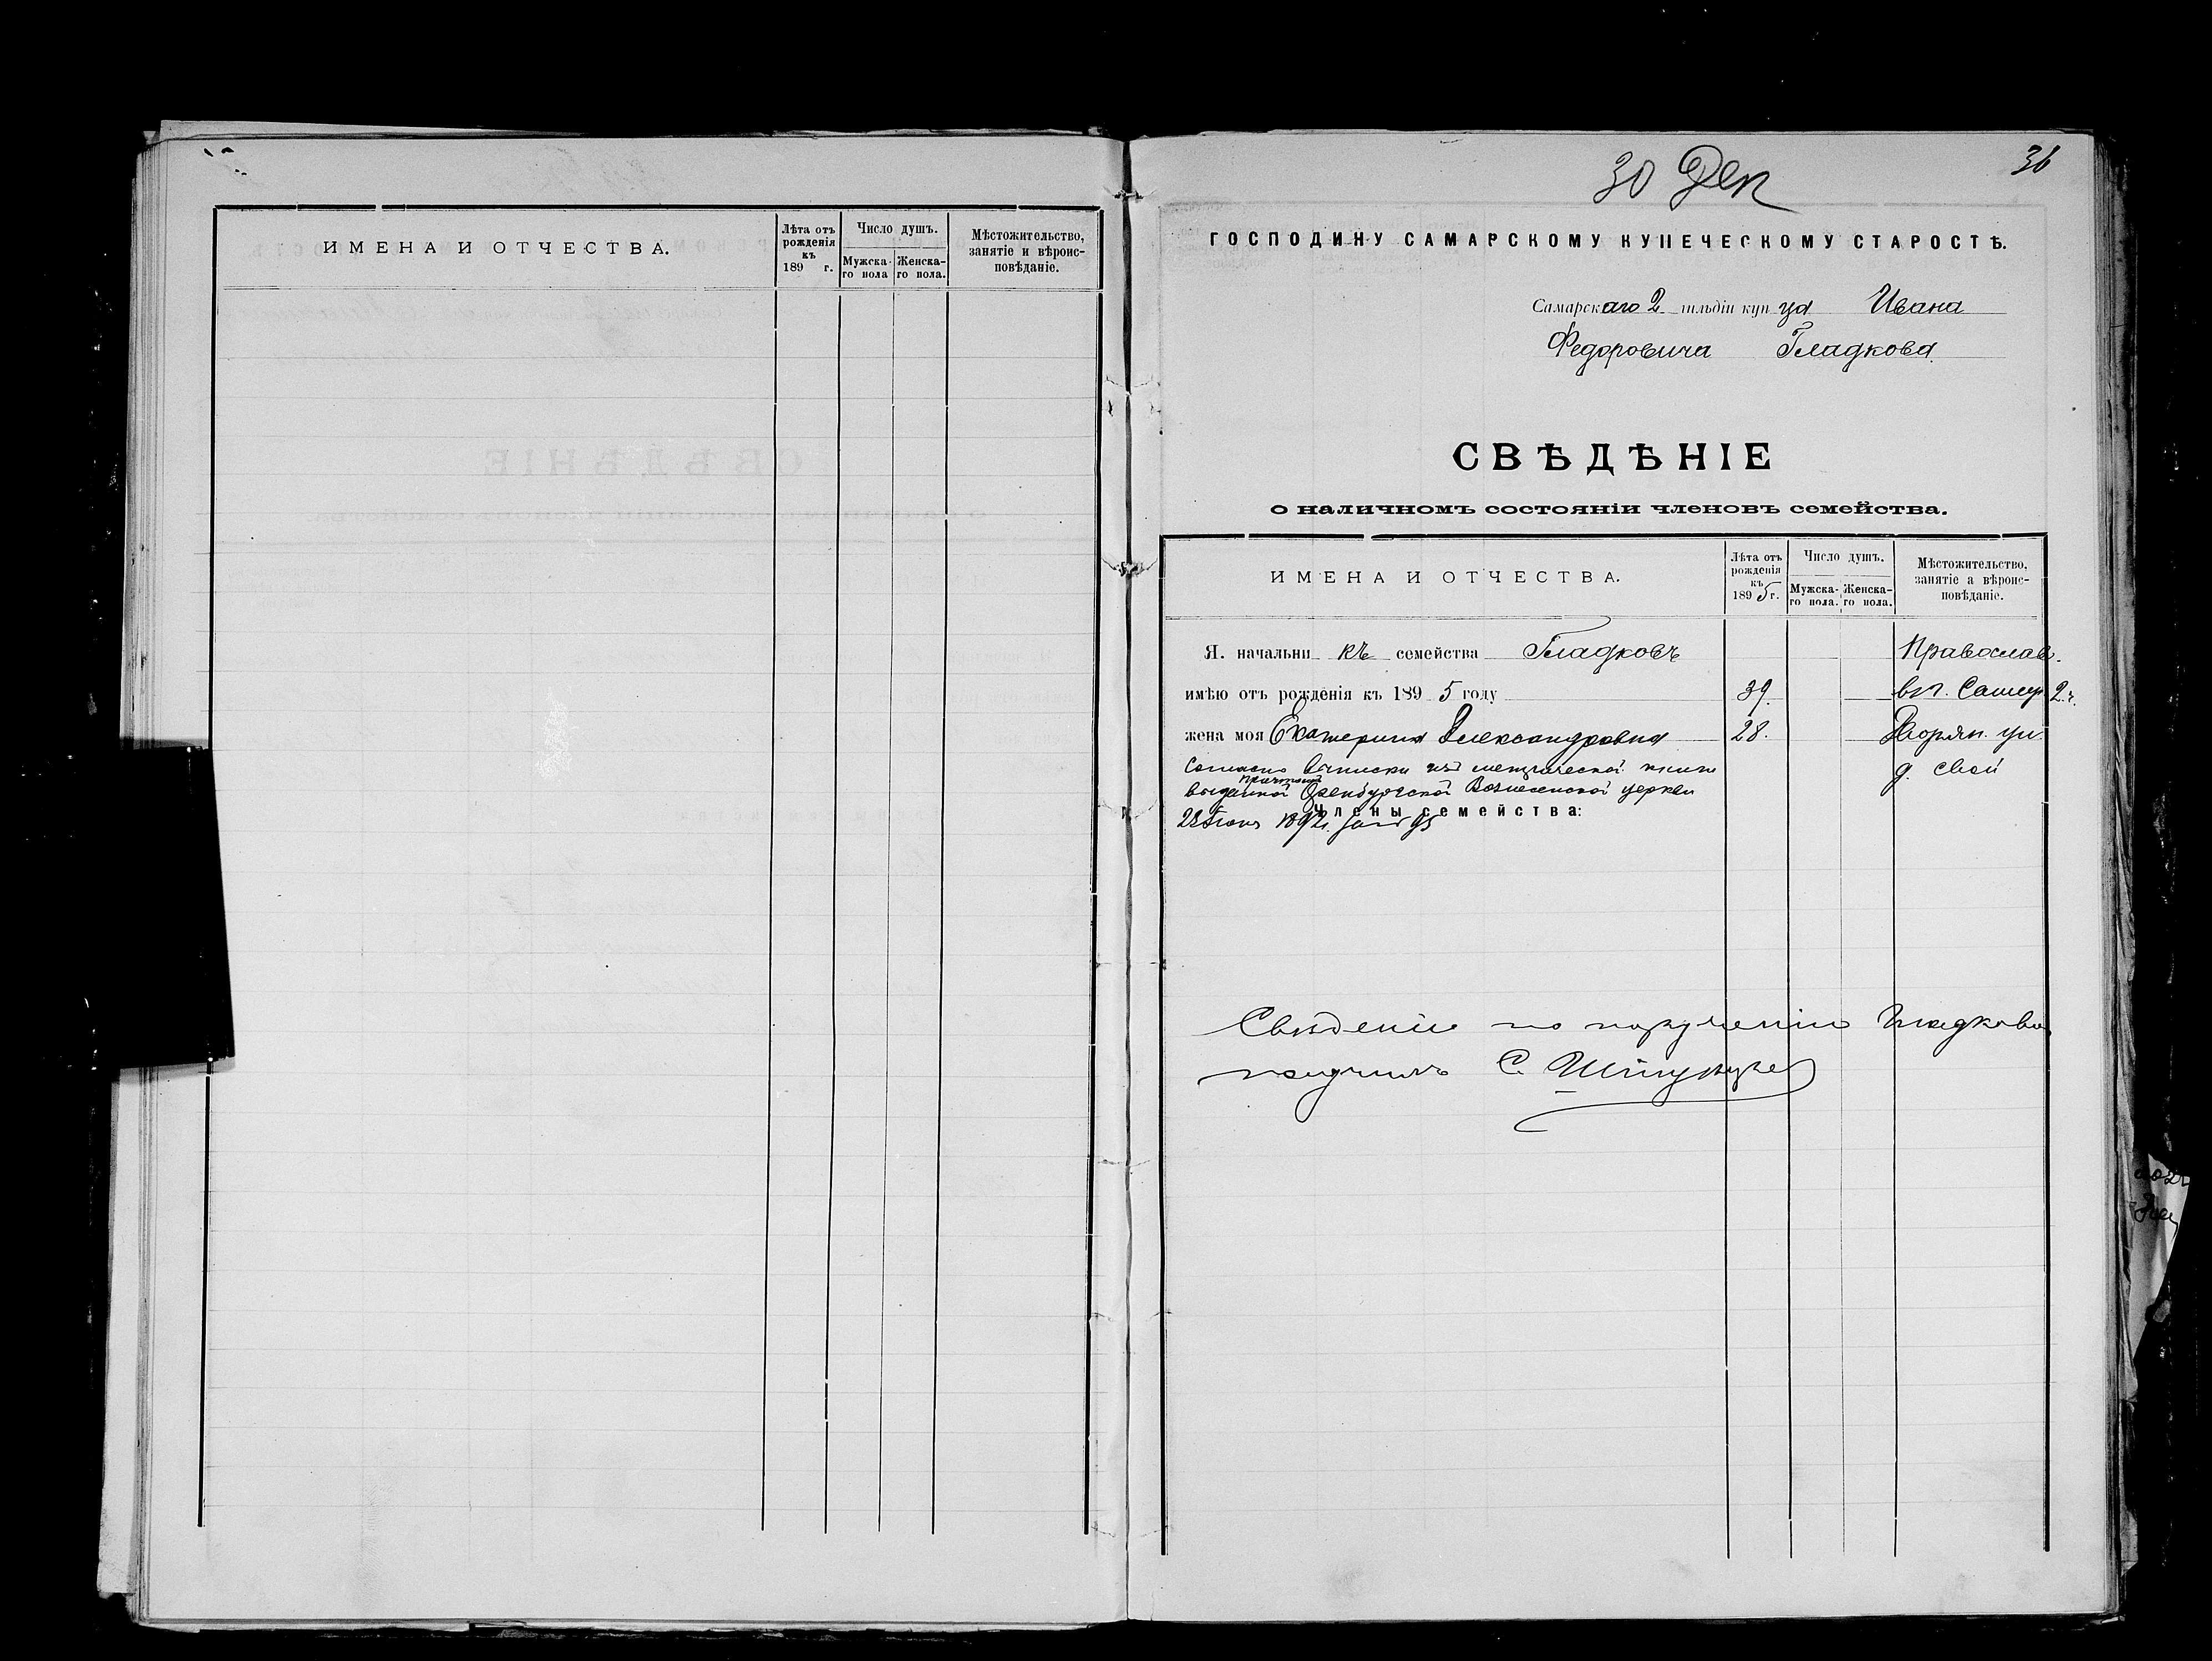 ИМЕНА И ОТЧЕСТВА.
Лѣта отъ рожденія къ 189 г.
Число душъ.
Мужска-го пола
Женска-го пола.
Мѣстожительство, занятіе и вѣроис-повѣданіе.
30 Дек
36
ГОСПОДИНУ САМАРСКОМУ КУПЕЧЕСКОМУ СТАРОСТѢ.
Самарскаго 2 гильдіи купца Ивана
Федоровича Гладкова
СВѢДѢНІЕ
о наличномъ состояніи членовъ семейства.
ИМЕНА И ОТЧЕСТВА.
Лѣта отъ рожденія къ 1895 г.
Число душъ.
Мужска-го пола.
Женска-го пола.
Мѣстожительство, занятіе а вѣроис-повѣданіе.
Я. начальникъ семейства Гладковъ Православ.
имѣю отъ рожденія къ 1895 году 39. въ г. Самар. 2 ч.
жена моя Екатерина Александровна 28. Дворян. ул.
Согласно выписки изъ метрической книги д. свой
причтомъ
выданной Оренбургской Вознесенской церкви
Члены семейства:
28 1892 г. за № 95
Свѣдение по порученію Гладкова
получилъ С.